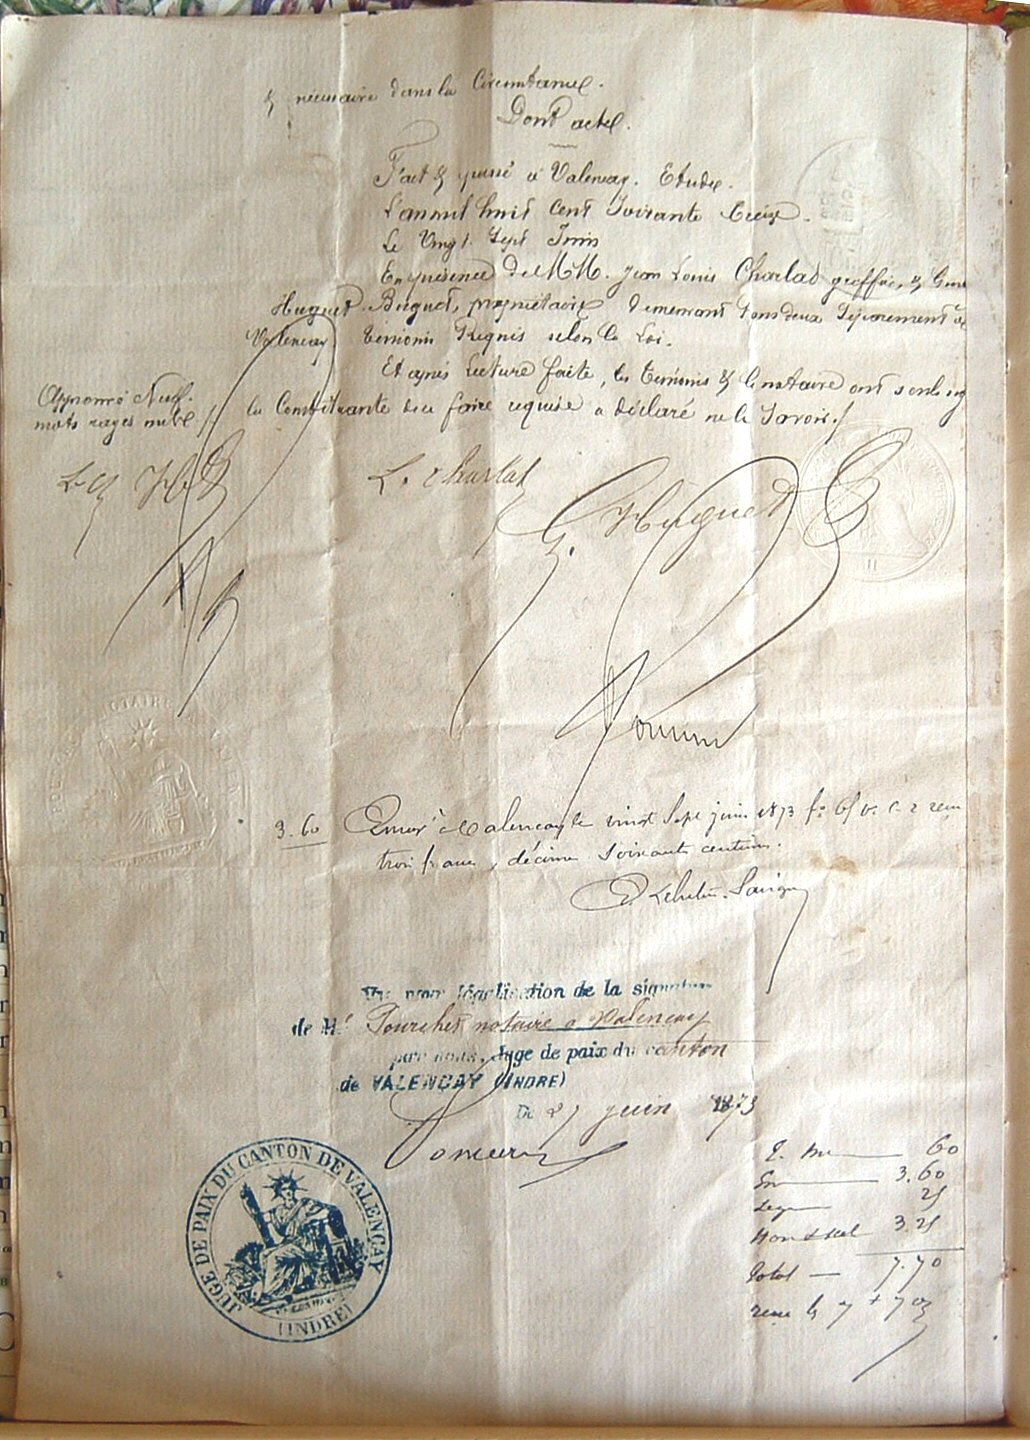 & nécessaire dans la Circonstance.
Dont acte.
Fait & passé à Valençay. Etude.
L'an mil huit cent Soixante treize.
Le Vingt Sept Juin
En présence de MM. Jean Louis Charlat greffier, &
Huguet-Buguet, propriétaire demeurant tous deux Séparément à
Valençay témoins Requis selon la Loi.
Et après Lecture faite, les témoins & le notaire ont seuls
la Constituante de ce faire requise a déclaré ne le Savoir.
Approuvé Neuf
mots rayés nuls
L. Ch H
L. Charlat
G. Huguet
3.60 Enreg à Valençay le vingt Sept juin 1873 f° 61 v. c. 2 reçu
trois francs, décime Soixante centimes.
Vu pour légalisation de la signature
de Me Pourcher notaire à Valençay
par nous, Juge de paix du canton
de VALENÇAY (INDRE)
Du 27 juin 1873
JUGE DE PAIX DU CANTON DE VALENÇAY
(INDRE)
60
3.60
25
3.25
Total — 7.70